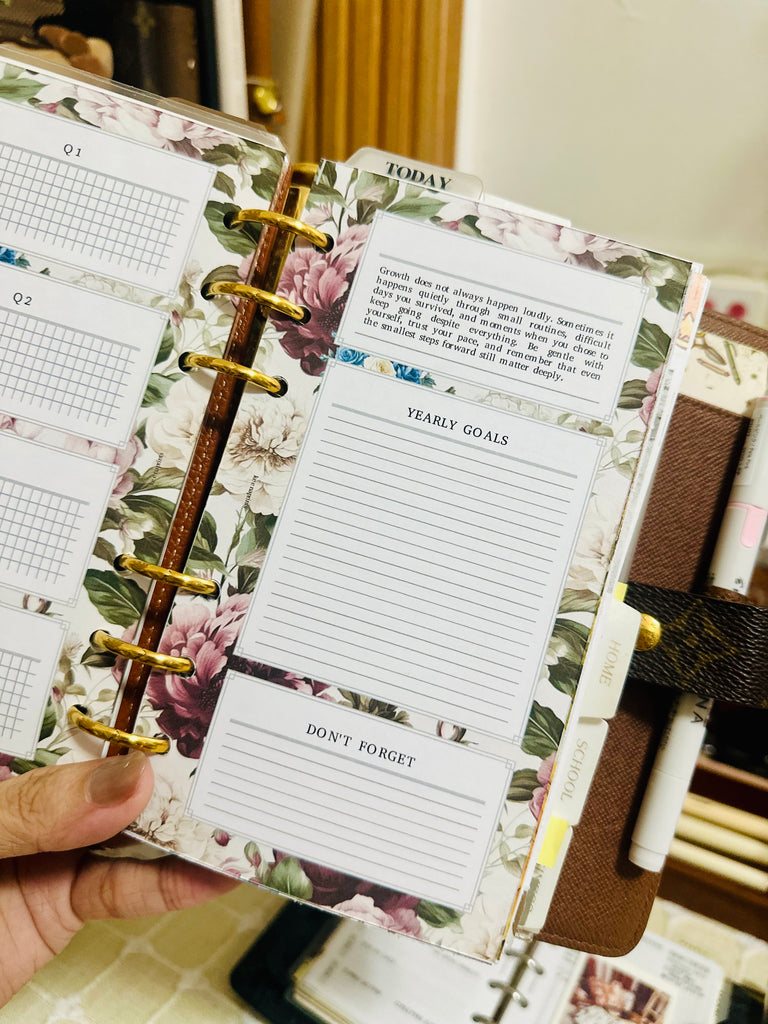 Q1
Q2
TODAY
Growth does not always happen loudly. Sometimes it
happens quietly through small routines, difficult
days you survived, and moments when you chose to
keep going despite everything. Be gentle with
yourself, trust your pace, and remember that even
the smallest steps forward still matter deeply.
YEARLY GOALS
DON'T FORGET
HOME
SCHOOL
NA